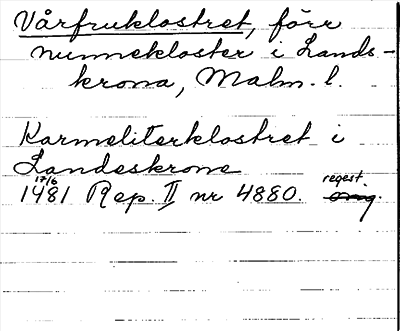 Vårfruklostret, förr
nunnekloster i Lands-
krona, Malm. l.
Karmeliterklostret i
Landeskrone
17/6 1481 Rep. II nr 4880. regest. orig.